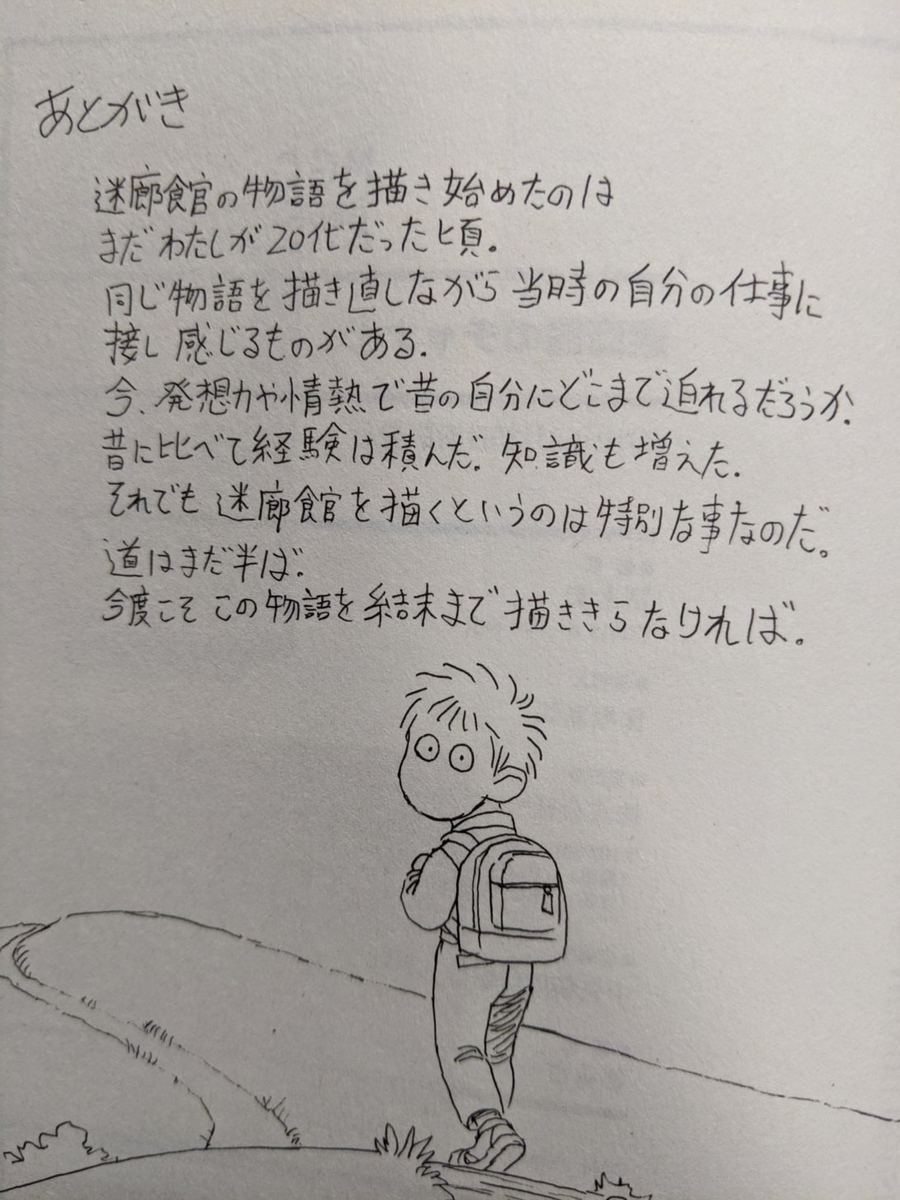 あとがき
迷廊館の物語を描き始めたのは
まだわたしが20代だった頃。
同じ物語を描き直しながら当時の自分の仕事に
接し感じるものがある。
今、発想力や情熱で昔の自分にどこまで迫れるだろうか。
昔に比べて経験は積んだ。知識も増えた。
それでも迷廊館を描くというのは特別な事なのだ。
道はまだ半ば。
今度こそこの物語を結末まで描ききらなければ。